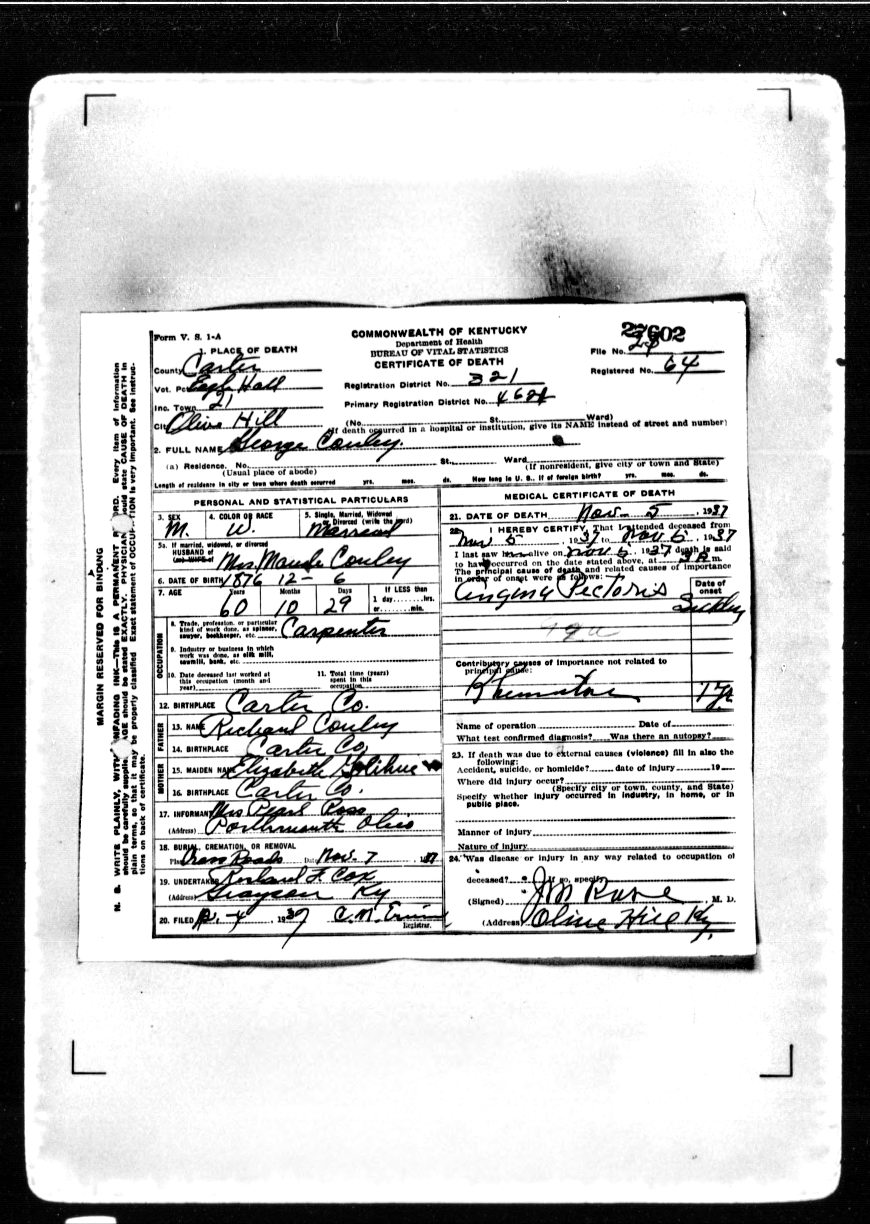 MARGIN RESERVED FOR BINDING
N. B. WRITE PLAINLY, WITH UNFADING INK—This is A PERMANENT RECORD. Every item of information
should be carefully supplied. AGE should be stated EXACTLY. PHYSICIANS should state CAUSE OF DEATH in
plain terms, so that it may be properly classified. Exact statement of OCCUPATION is very important. See instruc-
tions on back of certificate.
Form V. S. 1-A
COMMONWEALTH OF KENTUCKY
Department of Health
BUREAU OF VITAL STATISTICS
CERTIFICATE OF DEATH
27602
File No.
Registered No. 64
1. PLACE OF DEATH
County Carter
Vot. Pct
Inc. Town 21
City Olive Hill
Registration District No. 321
Primary Registration District No.
(No. St. Ward)
(If death occurred in a hospital or institution, give its NAME instead of street and number)
2. FULL NAME George Conley
(a) Residence. No. St., Ward.
(Usual place of abode) (If nonresident, give city or town and State)
Length of residence in city or town where death occurred yrs. mos. ds. How long in U. S., if of foreign birth? yrs. mos. ds.
PERSONAL AND STATISTICAL PARTICULARS
3. SEX M.
4. COLOR OR RACE W.
5. Single, Married, Widowed or Divorced (write the word) Married
5a. If married, widowed, or divorced
HUSBAND of
(or) WIFE of Mrs Maude Conley
6. DATE OF BIRTH 1876 12 - 6
7. AGE Years 60 Months 10 Days 29 If LESS than 1 day hrs. or min.
OCCUPATION
8. Trade, profession, or particular kind of work done, as spinner, sawyer, bookkeeper, etc. Carpenter
9. Industry or business in which work was done, as silk mill, sawmill, bank, etc.
10. Date deceased last worked at this occupation (month and year)
11. Total time (years) spent in this occupation
12. BIRTHPLACE Carter Co.
FATHER
13. NAME Richard Conley
14. BIRTHPLACE Carter Co
MOTHER
15. MAIDEN NAME Elizabeth
16. BIRTHPLACE Carter Co.
17. INFORMANT Mrs Pearl Ross
(Address) Portsmouth Ohio
18. BURIAL, CREMATION, OR REMOVAL
Place Cross Roads Date Nov. 7 37
19. UNDERTAKER F. Cox
(Address) Grayson Ky
20. FILED 4, 1937 C. M.
Registrar.
MEDICAL CERTIFICATE OF DEATH
21. DATE OF DEATH Nov. 5, 1937
22. I HEREBY CERTIFY, That I attended deceased from
Nov 5, 1937 to Nov 5, 1937
I last saw him alive on Nov 5, 1937 death is said
to have occurred on the date stated above, at m.
The principal cause of death and related causes of importance
in order of onset were as follows:
Date of onset
Pectoris
Contributory causes of importance not related to
principal cause:
Name of operation Date of
What test confirmed diagnosis? Was there an autopsy?
23. If death was due to external causes (violence) fill in also the
following:
Accident, suicide, or homicide? date of injury 19
Where did injury occur?
(Specify city or town, county, and State)
Specify whether injury occurred in industry, in home, or in
public place.
Manner of injury
Nature of injury
24. Was disease or injury in any way related to occupation of
deceased? If so, specify
(Signed) J M Rose, M. D.
(Address) Olive Hill Ky.